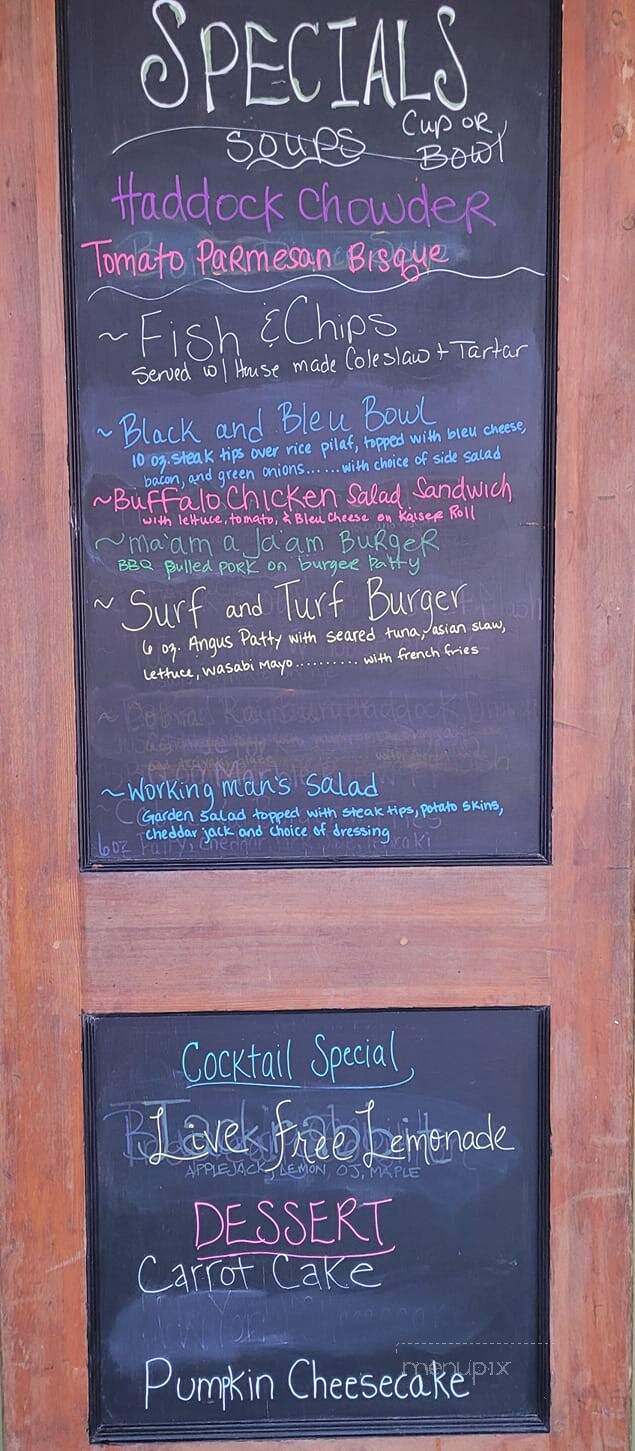 SPECIALS
SOUPS
CUP OR
BOWL
Haddock Chowder
Tomato Parmesan Bisque
~ Fish & Chips
Served w/ House made Coleslaw + Tartar
~ Black and Bleu Bowl
10 oz. steak tips over rice pilaf, topped with bleu cheese,
bacon, and green onions......with choice of side salad
~Buffalo Chicken Salad Sandwich
with lettuce, tomato, & Bleu Cheese on Kaiser Roll
~ma'am a Ja'am Burger
BBQ Pulled Pork on burger Patty
~ Surf and Turf Burger
6 oz. Angus Patty with seared tuna, asian slaw,
lettuce, wasabi mayo.......... with french fries
~Working man's Salad
Garden Salad topped with steak tips, potato skins,
cheddar jack and choice of dressing
6 oz
Cocktail Special
Live Free Lemonade
APPLEJACK, LEMON, OJ, MAPLE
DESSERT
Carrot Cake
Pumpkin Cheesecake
menupix